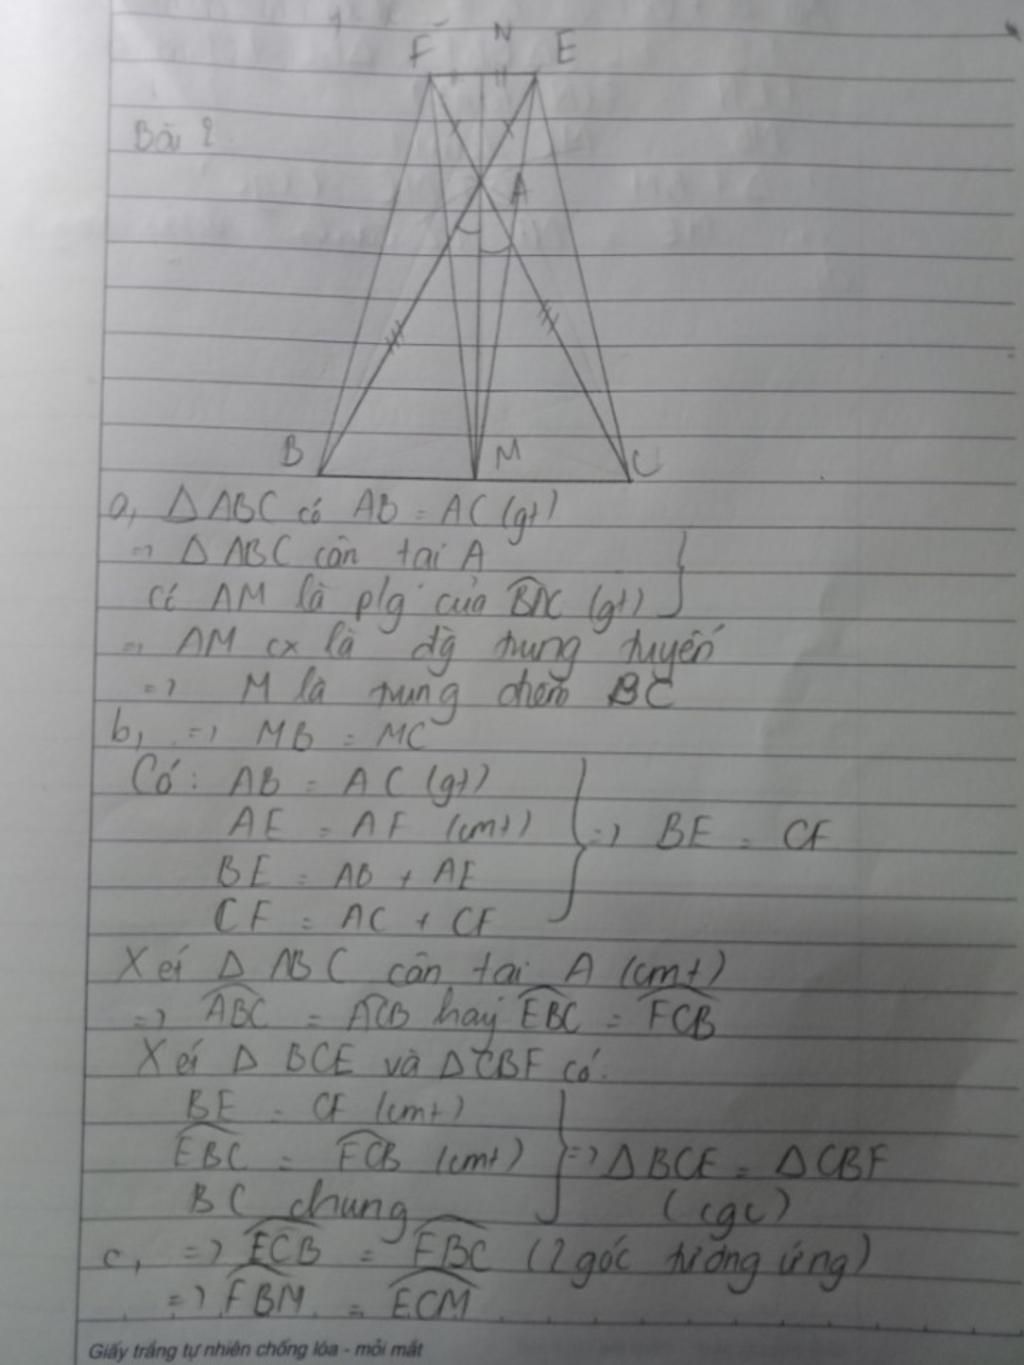 F N E
Bài 2
A
B M C
a, Δ ABC có AB = AC (gt)
=> Δ ABC cân tại A
Có AM là p/g của BAC (gt)
=> AM cx là đg trung tuyến
=> M là trung điểm BC
b, => MB = MC
Có: AB = AC (gt)
AE = AF (cmt) => BE = CF
BE = AB + AE
CF = AC + CF
Xét Δ ABC cân tại A (cmt)
=> ABC = ACB hay EBC = FCB
Xét Δ BCE và Δ CBF có:
BE = CF (cmt)
EBC = FCB (cmt) => Δ BCE = Δ CBF
BC chung (cgc)
c, => ECB = FBC (2 góc tương ứng)
=> FBM = ECM
Giấy trắng tự nhiên chống lóa - mỏi mắt